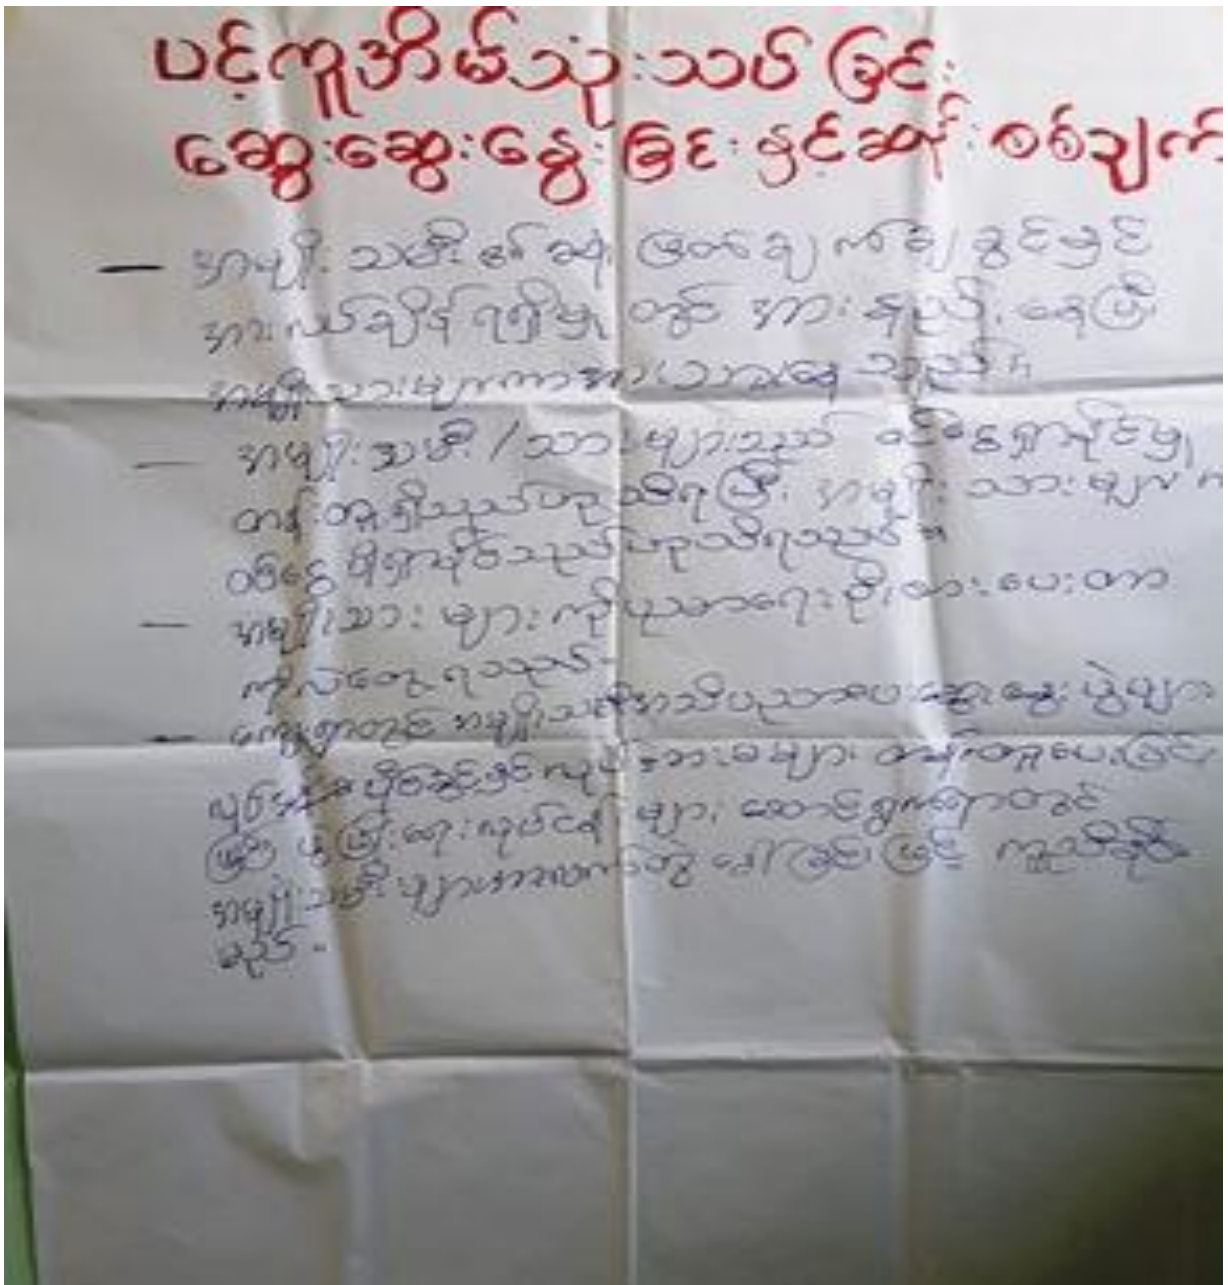 ပင့်ကူအိမ်သုံးသပ်ခြင်း
ဆွေးဆွေးနွေးခြင်းနှင့်ဆန်းစစ်ချက်
— အမျိုးသမီး၏ ဆုံးဖြတ်ချက်ချခွင့်နှင့်
အားလပ်ချိန်ရရှိမှုတွင် အားနည်းနေပြီး
အမျိုးသားများကအားသာနေသည်။
— အမျိုးသမီး/သားများသည် ဝင်ငွေရှာနိုင်မှု
တန်းတူရှိသည်ဟုသိရပြီး အမျိုးသားများက
ဝင်ငွေပိုရှာနိုင်သည်ဟုသိရသည်။
— အမျိုးသားများကိုပညာရေးဦးစားပေးတာ
ကိုလဲတွေ့ရသည်။
— ကျေးရွာတွင် အမျိုးသမီးအသိပညာပေးဆွေးနွေးပွဲများ
ပိုင်ခွင့်နှင့်လုပ်အားခများ တန်းတူပေးခြင်း
ဖွံ့ဖြိုးရေးလုပ်ငန်းများ ဆောင်ရွက်ရာတွင်
အမျိုးသမီးများအားလက်တွဲခေါ်ခြင်းဖြင့် ကူညီနိုင်
မည်။